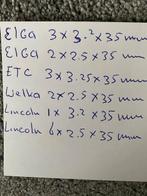 Elga 3 x 3.2 x 35 mm
Elga 2 x 2.5 x 35 mm
ETC 3 x 3.25 x 35 mm
Welka 2 x 2.5 x 35 mm
Lincoln 1 x 3.2 x 35 mm
Lincoln 6 x 2.5 x 35 mm